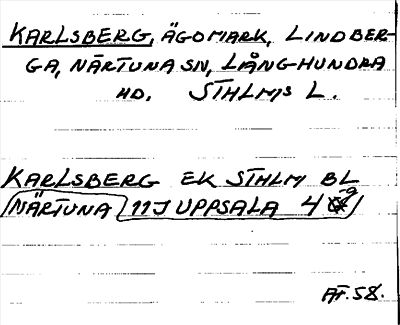 KARLSBERG, ÄGOMARK, LINDBER-
GA, NÄRTUNA SN, LÅNGHUNDRA
HD. STHLMS L.
KARLSBERG EK STHLM BL
NÄRTUNA 11J UPPSALA 4 g
ÄF. 58.